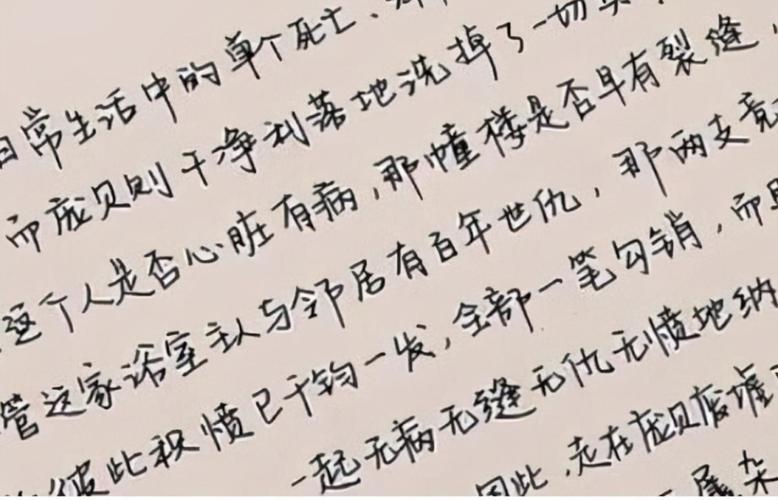 日常生活中的单个死亡、
而庞贝则干净利落地洗掉了一切
这个人是否心脏有病,那幢楼是否早有裂缝,
管这家浴室主人与邻居有百年世仇,那两支竞
彼此积愤已千钧一发,全部一笔勾销,而且
一起无病无缝无仇无愤地纳
因此,走在庞贝废墟
尾杂